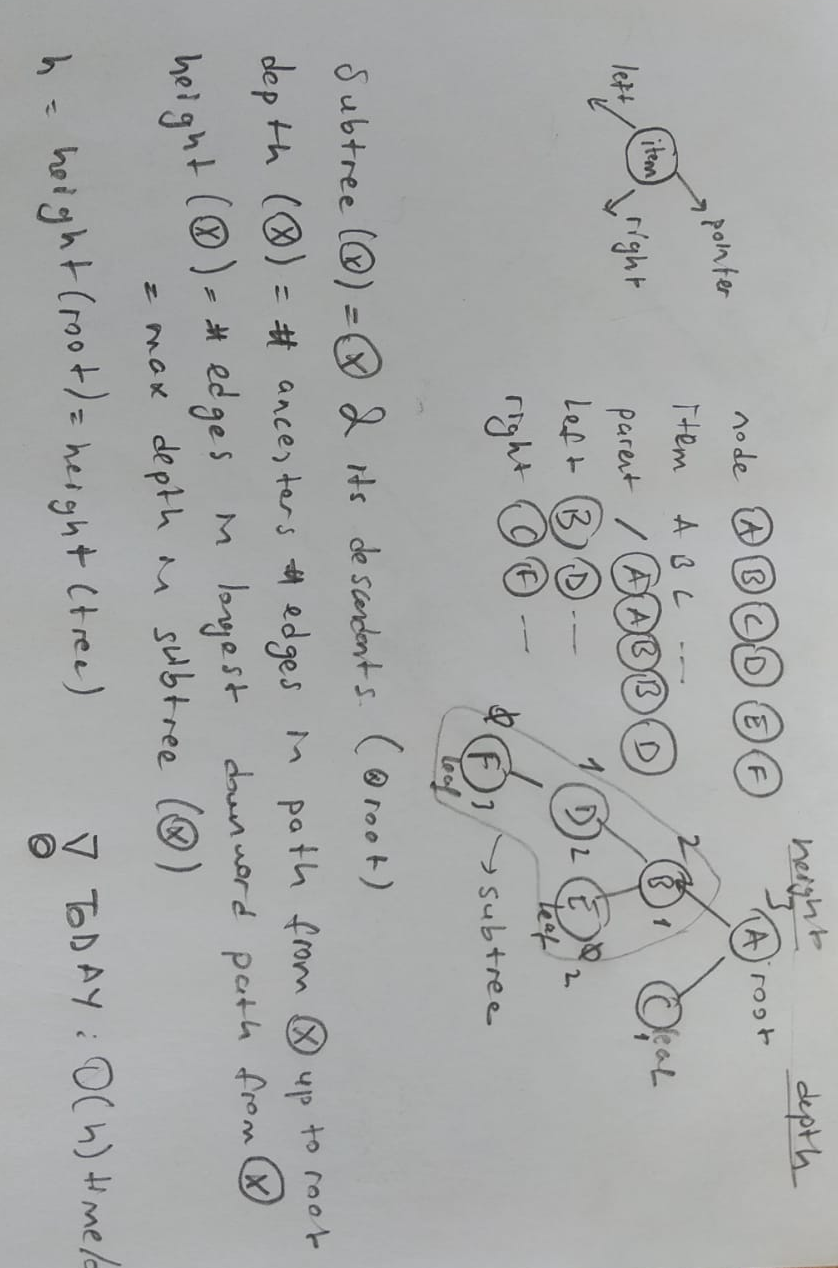 height depth
node A B C D E F
item A B C ---
parent / A A B B D
Left B D ---
right C F ---
pointer
item
left right
A root
3
2 B 1
C leaf
1 D 2
E leaf 0 2
0 F leaf 3
→ subtree
Subtree (x) = x & its descendants. (x root)
depth (x) = # ancestors # edges in path from x up to root
height (x) = # edges in longest downward path from x
= max depth in subtree (x)
h = height (root) = height (tree)
TODAY: O(h) time/